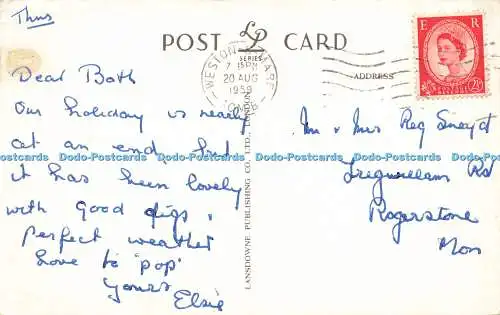 Thurs
POST LP CARD
SERIES
WESTON-S-MARE
7.15PM
20 AUG
1959
SOM
E R
2½D
ADDRESS
Dear Both
Our holiday is nearly
at an end, but
it has been lovely
with good digs,
perfect weather
Love to "pop"
Yours
Elsie
LANSDOWNE PUBLISHING CO., LTD., LONDON
Mr & Mrs Reg
Tregwilliam Rd
Rogerstone
Mon
Dodo-Postcards Dodo-Postcards Dodo-Postcards Dodo-Postcards Dodo-Postcards Dodo-Postcards